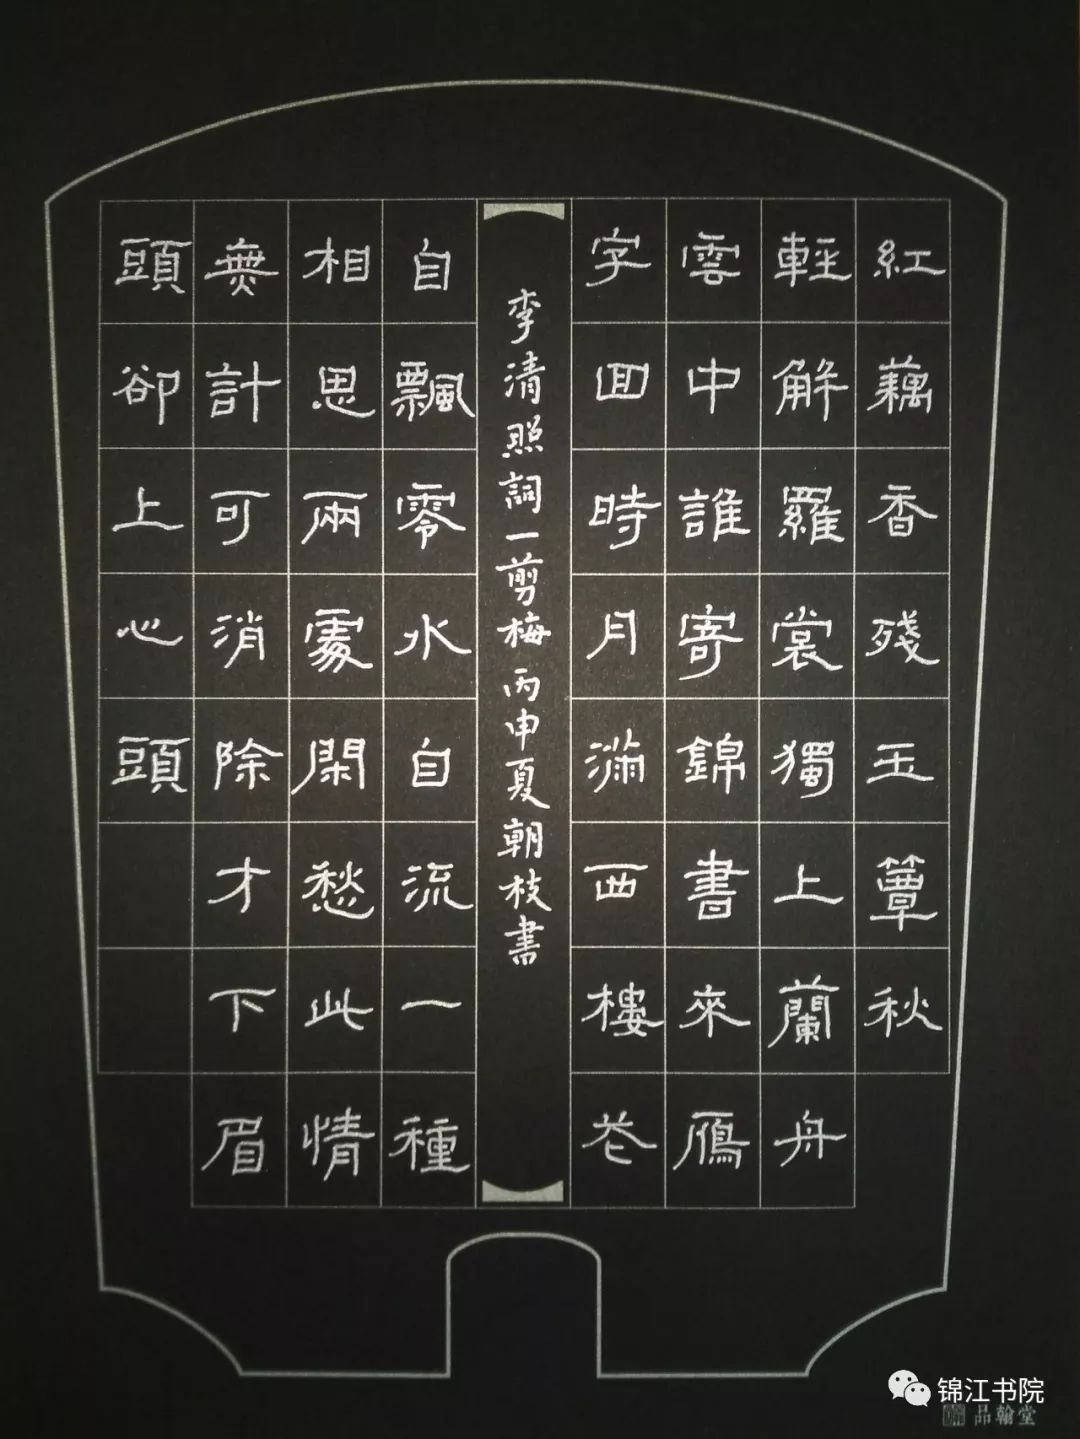 紅藕香殘玉簟秋
輕解羅裳獨上蘭舟
雲中誰寄錦書來鴈
字囬時月滿西樓花
李清照詞一剪梅 丙申夏朝枝書
自飄零水自流一種
相思兩處閑愁此情
無計可消除才下眉
頭卻上心頭
锦江书院
品翰堂